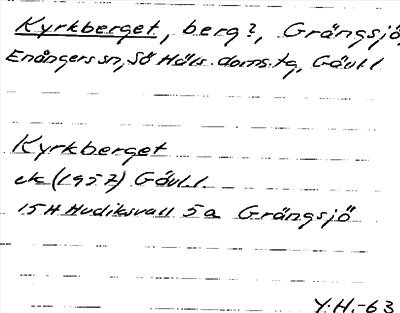 Kyrkberget, berg?, Grängsjö,
Enångers sn, Sö Häls. doms.tg, Gävl. l.
Kyrkberget
ek (1957) Gävl. l.
15H Hudiksvall 5a Grängsjö
Y.H.-63